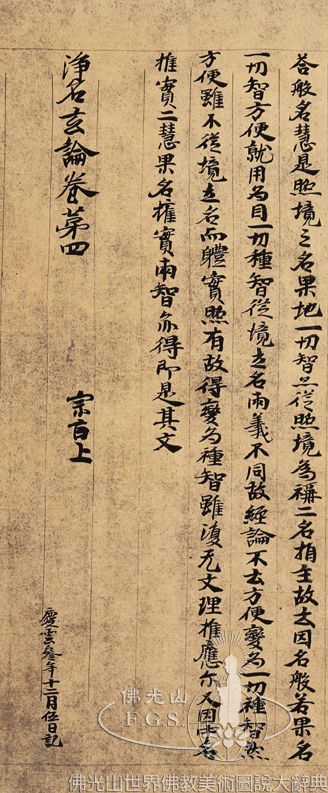 荅般名慧是照境之名果地一切智亦從照境為稱二名相主故去因名般若果名
一切智方便就用為目一切種智從境立名兩義不同故經論不去方便變為一切種智然
方便雖不從境立名而軆實照有故得變為種智雖復无文理推應尔又因中名
權實二慧果名權實兩智亦得即是其文
淨名玄論卷第四 宗百上
慶雲叁年十二月伍日記
佛光山
F.G.S.
佛光山世界佛教美術圖說大辭典